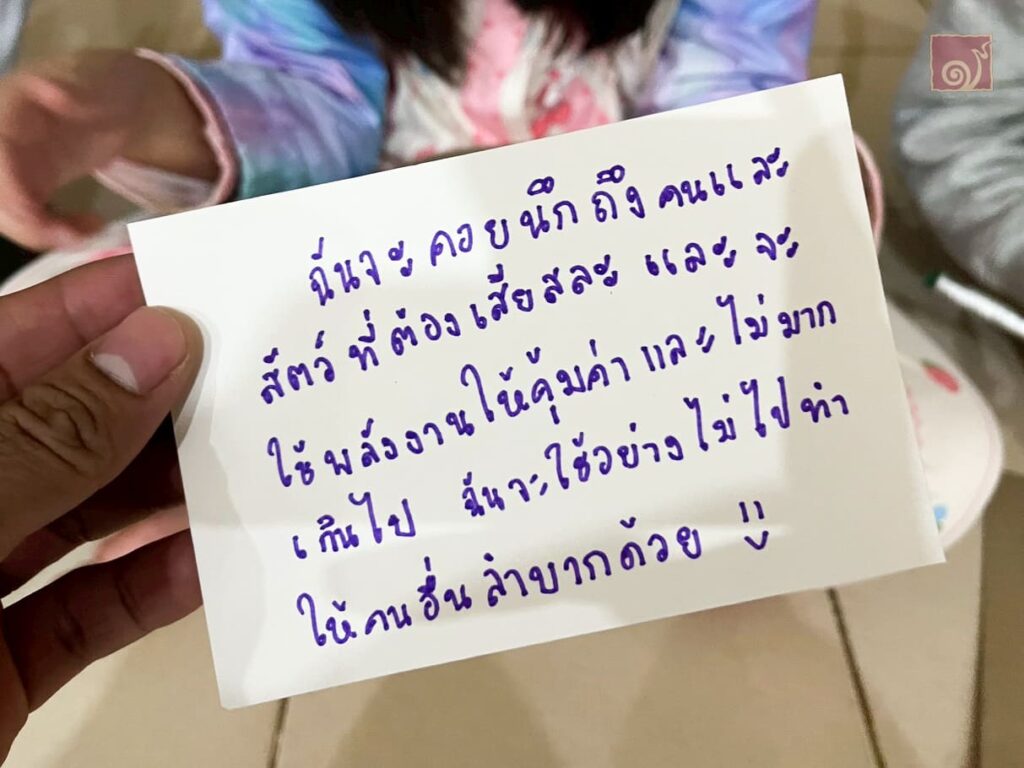 ฉันจะคอยนึกถึงคนและ
สัตว์ที่ต้องเสียสละ และจะ
ใช้พลังงานให้คุ้มค่าและไม่มาก
เกินไป ฉันจะใช้อย่างไม่ไปทำ
ให้คนอื่นลำบากด้วย